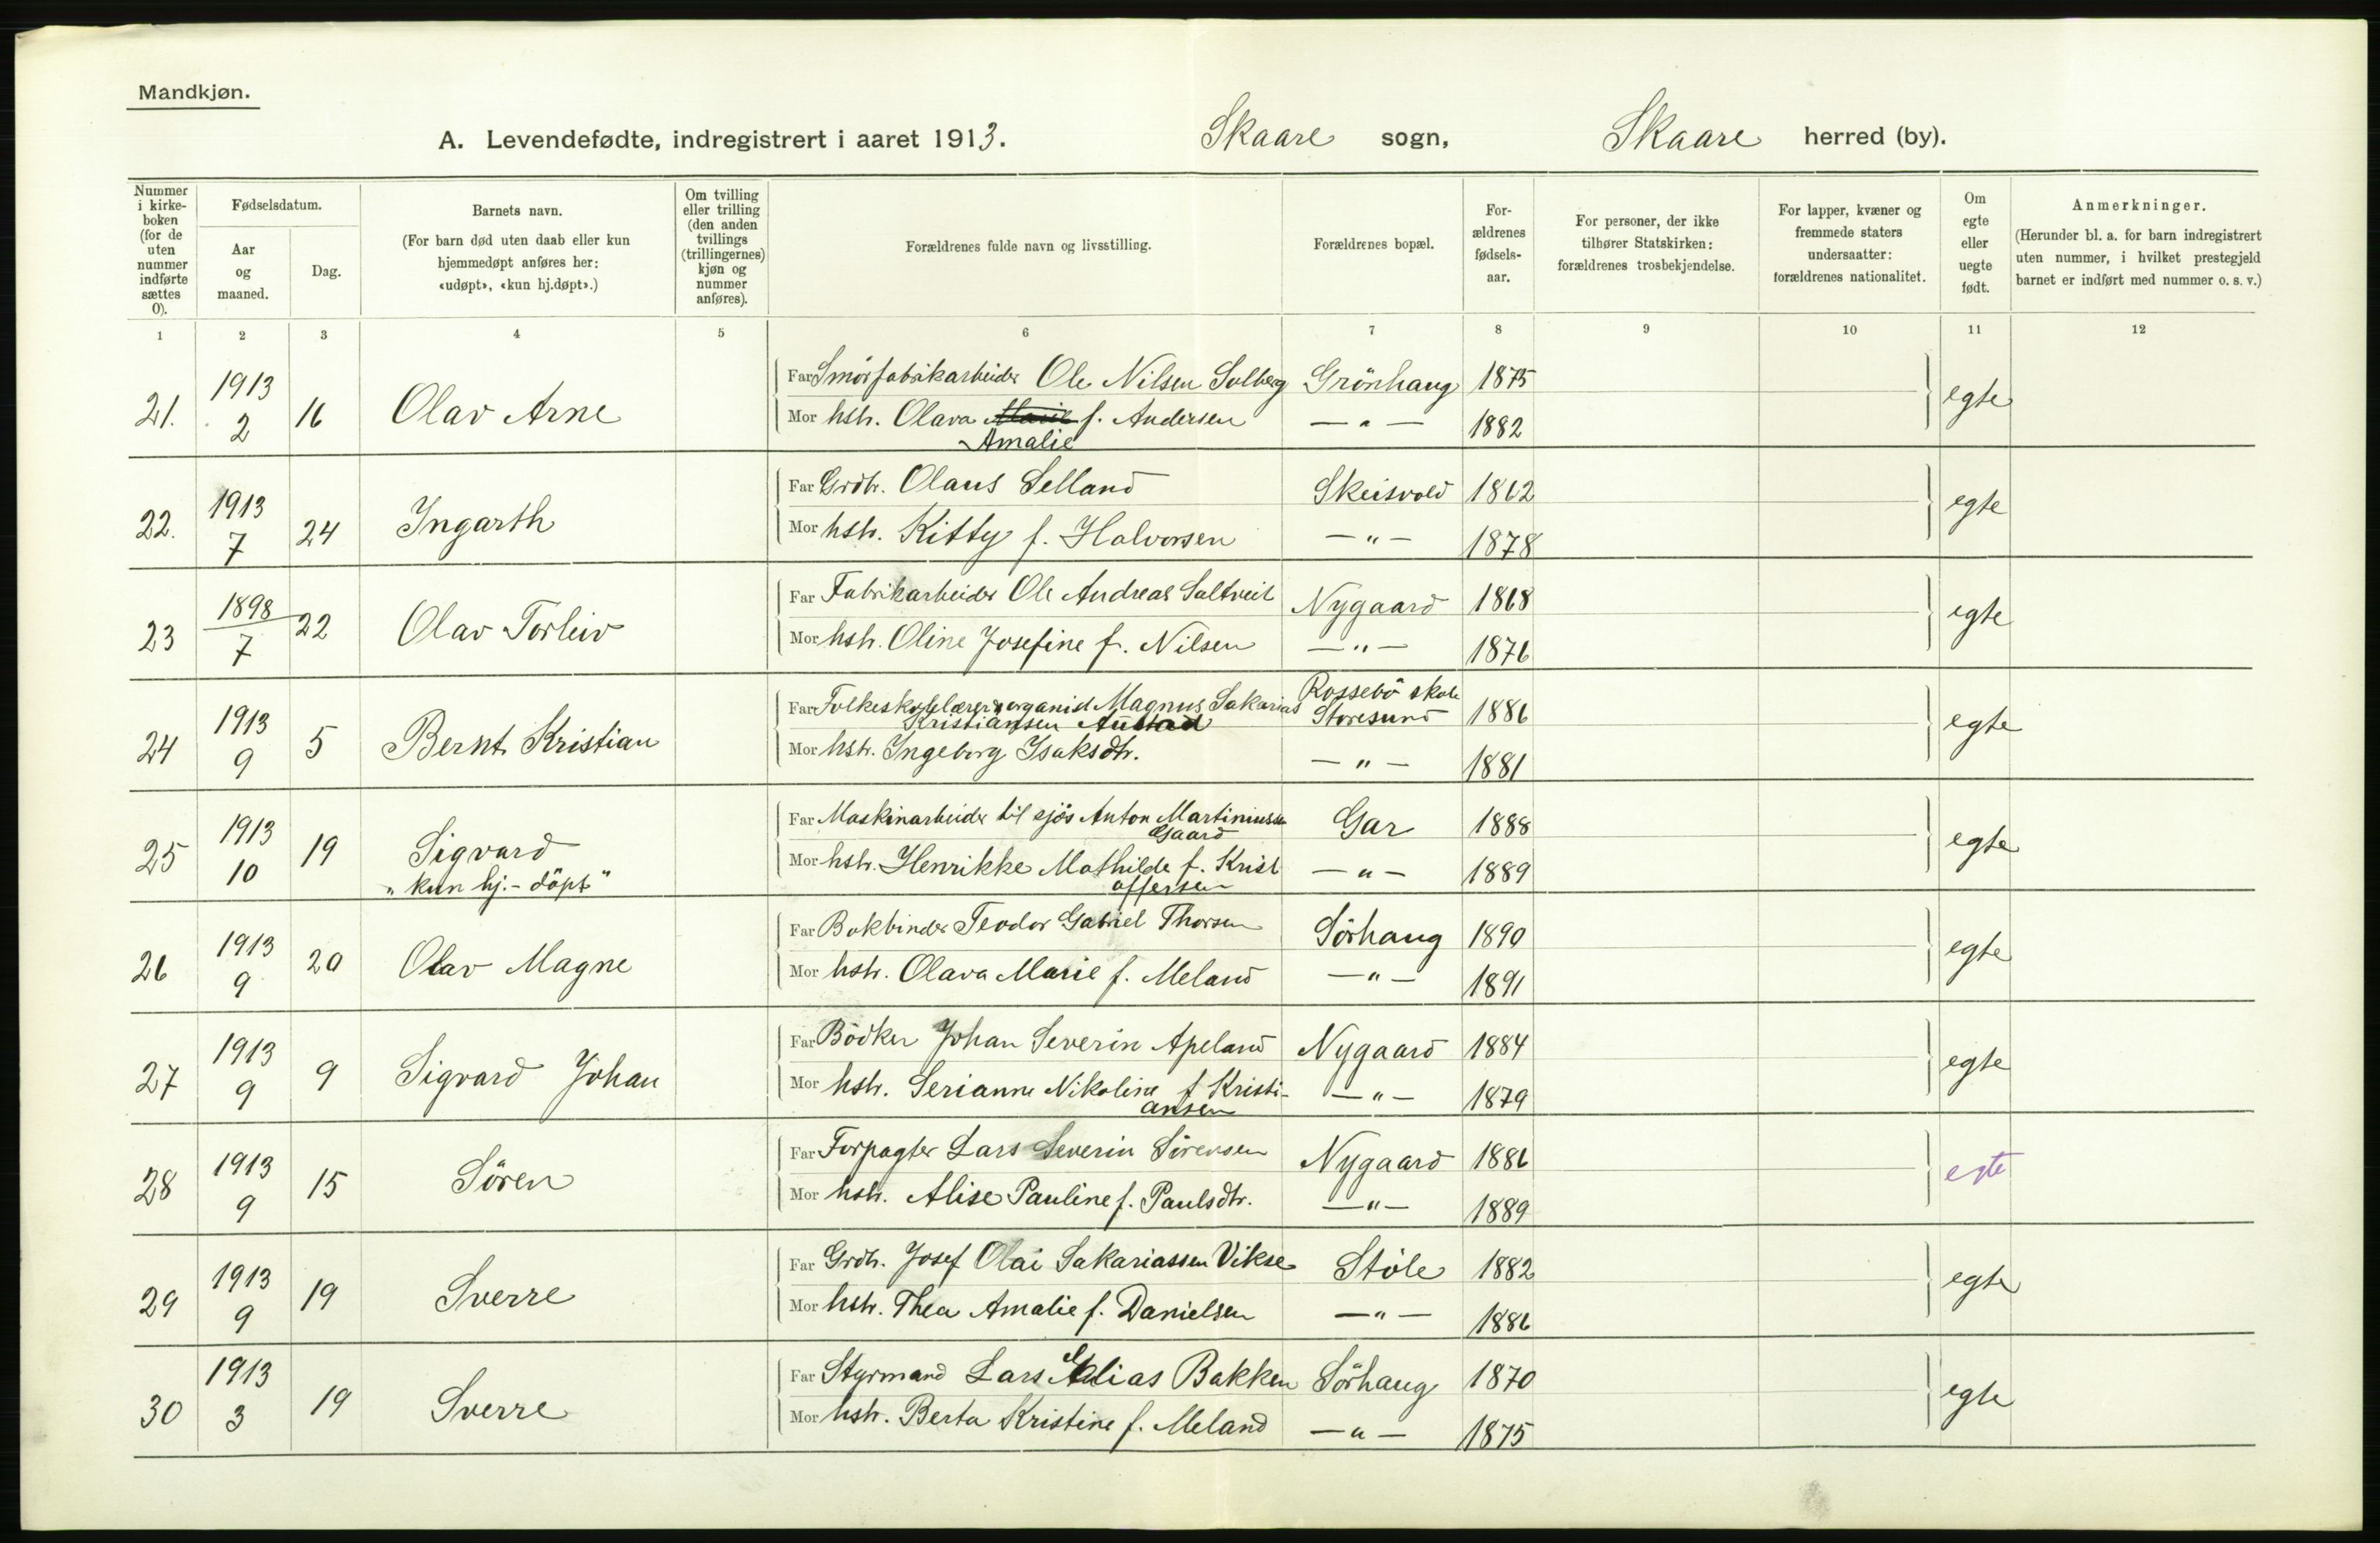 Mandkjøn.
A. Levendefødte, indregistrert i aaret 1913. Skaare sogn, Skaare herred (by).
Nummer i kirke-boken (for de uten nummer indførte sættes 0).
Fødselsdatum.
Aar og maaned.
Dag.
Barnets navn.
(For barn død uten daab eller kun hjemmedøpt anføres her: «udøpt», «kun hj.døpt».)
Om tvilling eller trilling (den anden tvillings (trillingernes) kjøn og nummer anføres).
Forældrenes fulde navn og livsstilling.
Forældrenes bopæl.
For-ældrenes fødsels-aar.
For personer, der ikke tilhører Statskirken: forældrenes trosbekjendelse.
For lapper, kvæner og fremmede staters undersaatter: forældrenes nationalitet.
Om egte eller uegte født.
Anmerkninger.
(Herunder bl. a. for barn indregistrert uten nummer, i hvilket prestegjeld barnet er indført med nummer o. s. v.)
1 2 3 4 5 6 7 8 9 10 11 12
21. 1913 2 16 Olav Arne Far Smörfabrikarbeider Ole Nilsen Solberg Grönhaug 1875 egte
Mor hstr. Olava Marie f. Andersen — " — 1882
Amalie
22. 1913 7 24 Ingarth Far Grdbr. Olaus Selland Skeisvold 1862 egte
Mor hstr. Kitty f. Halvorsen — " — 1878
23 1898 7 22 Olav Torleiv Far Fabrikarbeider Ole Andreas Saltveit Nygaard 1868 egte
Mor hstr. Oline Josefine f. Nilsen — " — 1876
24 1913 9 5 Bernt Kristian Far Folkeskolelærer & organist Magnus Sakarias Rossebö skole
Kristiansen Austad Storesund 1886 egte
Mor hstr. Ingeborg Isaksdtr. — " — 1881
25 1913 10 19 Sigvard Far Maskinarbeider til sjös Anton Martiniussen Gar 1888 egte
Gaard
"kun hj.-döpt" Mor hstr. Henrikke Mathilde f. Krist — " — 1889
offersen
26 1913 9 20 Olav Magne Far Bokbinder Teodor Gabriel Thorsen Sörhaug 1890 egte
Mor hstr. Olava Marie f. Meland — " — 1891
27 1913 9 9 Sigvard Johan Far Bödker Johan Severin Apeland Nygaard 1884 egte
Mor hstr. Serianne Nikoline f Kristi- — " — 1879
ansen
28 1913 9 15 Sören Far Forpagter Lars Severin Sörensen Nygaard 1886 egte
Mor hstr. Alise Pauline f. Paulsdtr. — " — 1889
29 1913 9 19 Sverre Far Grdbr. Josef Olai Sakariassen Vikse Stöle 1882 egte
Mor hstr. Thea Amalie f. Danielsen — " — 1886
30 1913 3 19 Sverre Far Styrmand Lars Elias Bakken Sörhaug 1870 egte
Mor hstr. Berta Kristine f. Meland — " — 1875